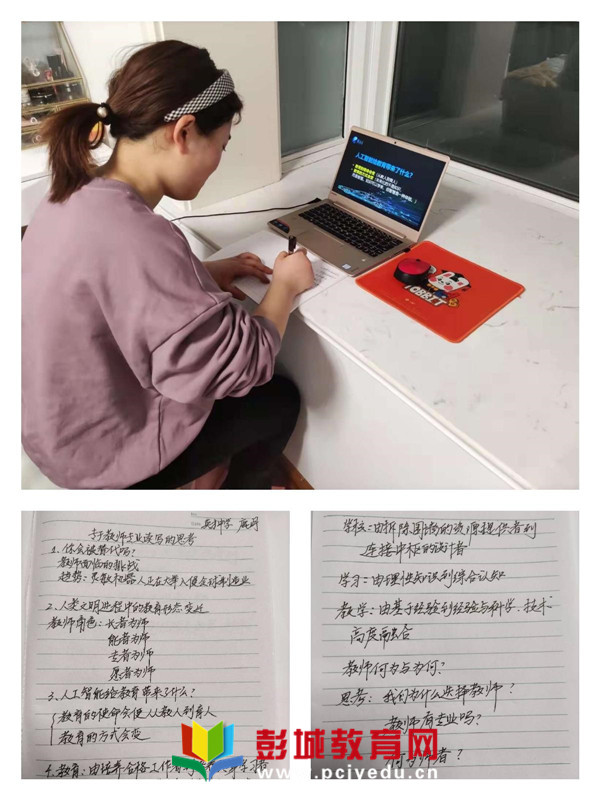 人工智能给教育带来了什么?
TOBBIT
关于教师专业读写的思考
1、你会被替代吗?
教师面临的挑战
2、人类文明进程中的教育形态变迁
教师角色:长者为师
能者为师
愿者为师
3、人工智能给教育带来了什么?
教育的使命会变 从教人到育人
教育的方式会变
4、教育:由培养合格工作者
学校:由拆除围墙的资源提供者到
连接中枢的设计者
学习:由理性知识到综合认知
教学:由基于经验到经验与科学、技术
高度融合
教师何为与为何?
思考:我们为什么选择教师?
教师有专业吗?
何为师者?
彭城教育网
www.pcjyedu.cn